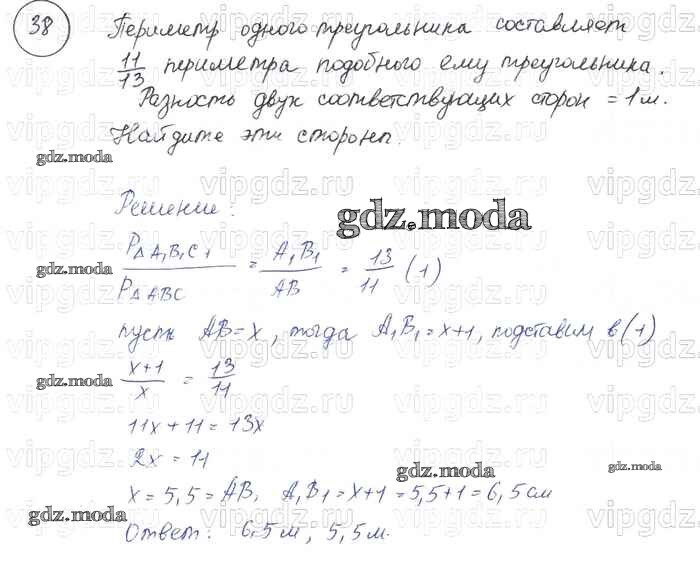 38
Периметр одного треугольника составляет
11/13 периметра подобного ему треугольника.
Разность двух соответствующих сторон = 1 м.
Найдите эти стороны.
gdz.moda
Решение:
gdz.moda
P△A₁B₁C₁ / P△ABC = A₁B₁ / AB = 13/11 (1)
gdz.moda
пусть AB=x, тогда A₁B₁=x+1, подставим в (1)
(x+1)/x = 13/11
gdz.moda
11x+11=13x
2x=11
gdz.moda
gdz.moda
x=5,5=AB, A₁B₁=x+1=5,5+1=6,5см
gdz.moda
Ответ: 6,5м, 5,5м.
vipgdz.ru